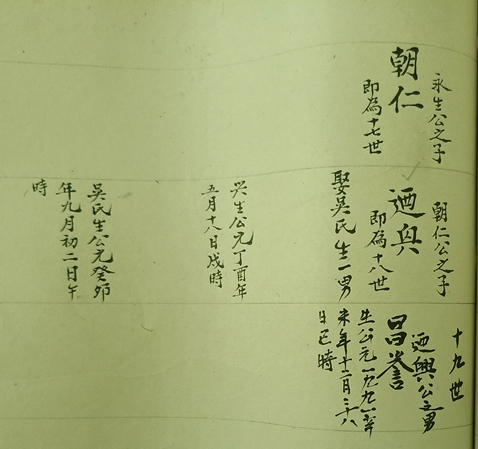 永生公之子
朝仁
即為十七世
朝仁公之子
迺興
即為十八世
娶吳氏生一男
兴生公元丁酉年
五月十八日戌時
吳氏生公元癸卯
年九月初二日午
時
十九世
迺興公之男
昌誉
生公元一九九一辛
未年十二月二十八
日巳時